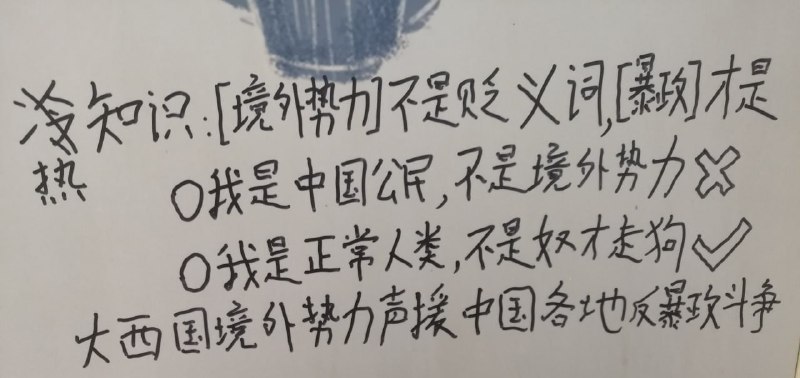 冷知识:[境外势力]不是贬义词,[暴政]才是
热
○我是中国公民,不是境外势力✗
○我是正常人类,不是奴才走狗✓
大西国境外势力声援中国各地反暴政斗争